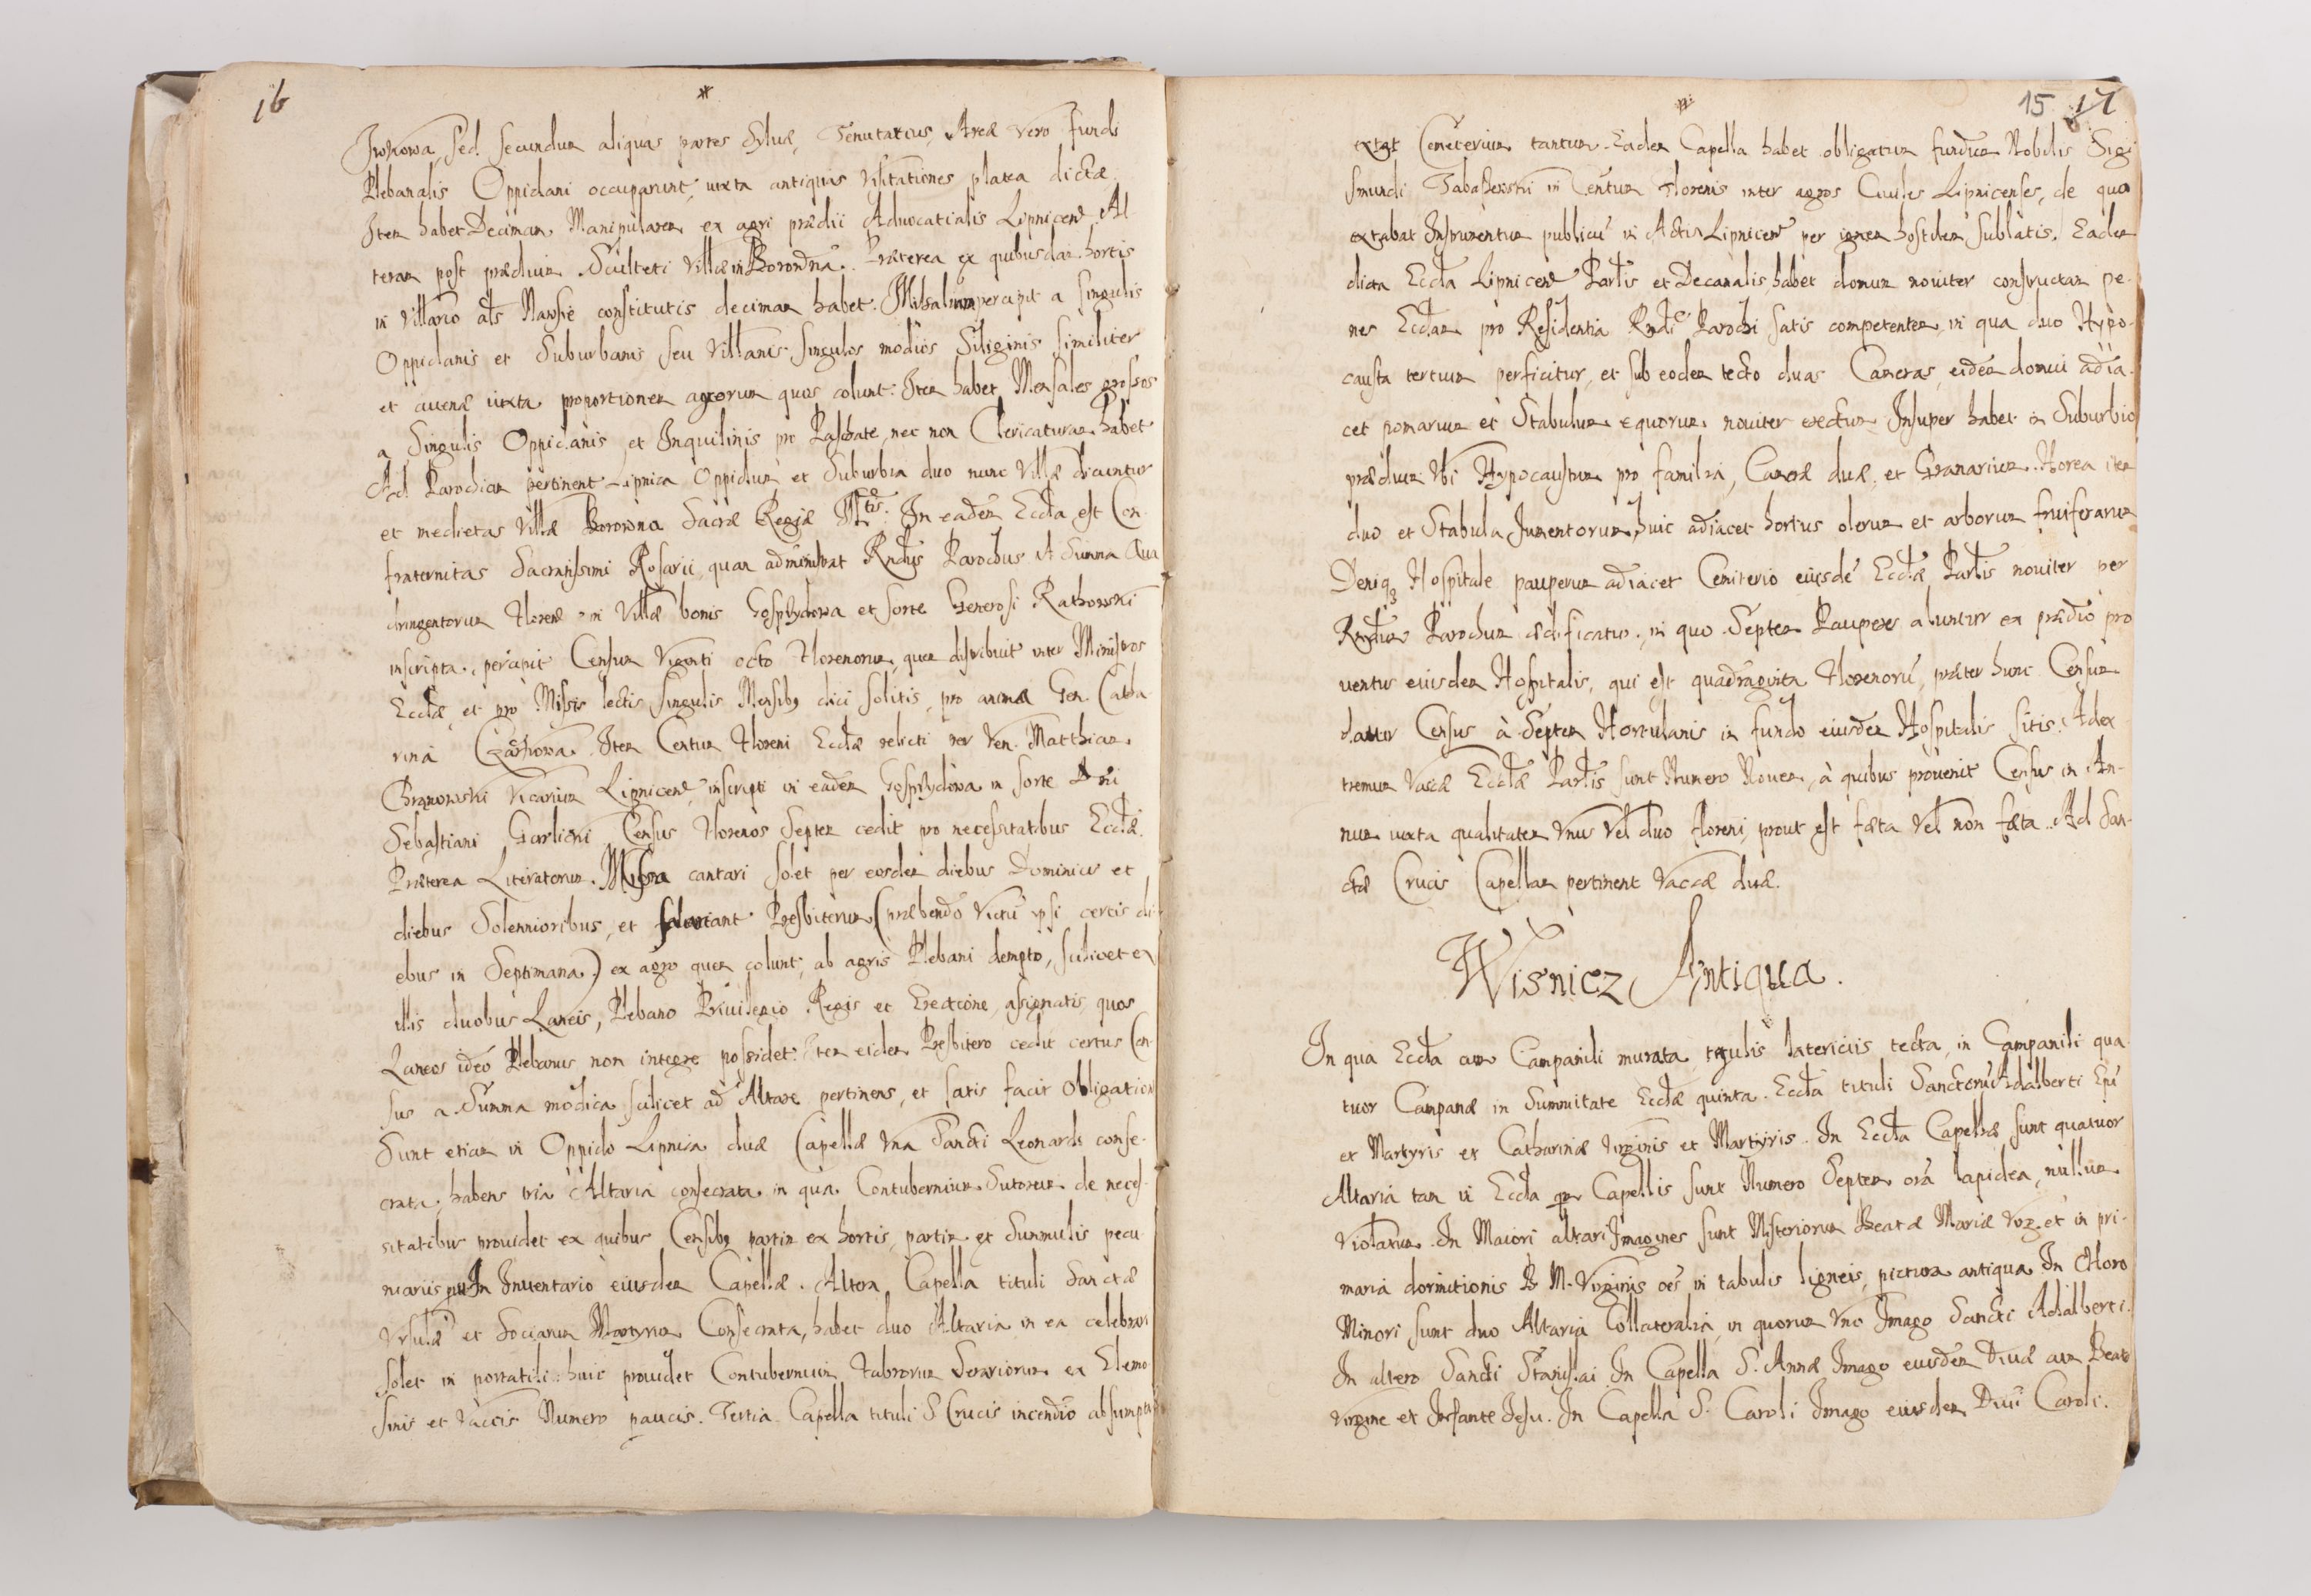 16
*
Iwkowa, sed secundum aliquas partes Syluæ, Tenutarius, Areæ vero fundi
Plebanalis Oppidani occuparunt, iuxta antiquas Visitationes platea dictæ.
Item habet Decimam Manipularem ex agri prædii Aduocatialis Lipnicen. Al-
teram post prædium Sculteti Villæ in Borowna. Præterea ex quibusdam hortis
in Villario als Nawsie constitutis decimam habet. Missalium percipit a singulis
Oppidanis et Suburbanis seu Villanis singulos modios Siliginis similiter
et auenæ iuxta proportionem agrorum quos colunt: Item habet Mensales grossos
a Singulis Oppidanis et Inquilinis pro Paschate, nec non Clericaturam habet
Ad Parochiam pertinent Lipnica Oppidum et Suburbia duo nunc Villæ dicuntur
et medietas Villæ Borowna Sacræ Regiæ Mttis. In eadem Eccla est Con-
fraternitas Sacratissimi Rosarii, quam administrat Rndus Parochus. A Summa Qua
dringentorum Floren. in Villæ bonis Gosprzydowa et sorte Generosi Rathowski
inscripta, percipit Censum Viginti octo Florenorum, quem distribuit inter Ministros
Ecclæ, et pro Missis lectis singulis Mensibus dici solitis, pro anima Gen. Catha-
rina Czarkowa. Item Centum Floreni Ecclæ relicti per Ven. Matthiam
Granowski Vicarium Lipnicen. inscripti in eadem Gosprzydowa in sorte Dni
Sebastiani Garlicki Census Florenos Septem cedit pro necessitatibus Ecclæ.
Præterea Literatorum Missa cantari solet per eosdem diebus Dominicis et
diebus Solennioribus, et salariant Presbiterum (præbendo victum ipsi certis di-
ebus in Septimana) ex agro quem colunt, ab agris Plebani dempto, scilicet ex
illis duobus Laneis, Plebano Priuilegio Regis et Erectione, assignatis, quos
Laneos ideo Plebanus non integre possidet. Item eidem Presbitero cedit certus Cen-
sus a Summa modica scilicet ad Altare pertinens, et satis facit Obligation
Sunt etiam in Oppido Lipnica duæ Capellæ Vna Sancti Leonardi conse-
crata, habens tria Altaria consecrata in qua Contubernium Sutorum de neces-
sitatibus prouidet ex quibus Censibus partim ex hortis, partim ex Summulis pecu-
niariis In Inuentario eiusdem Capellæ. Altera Capella tituli Sanctæ
Vrsulæ et Sociarum Martyrum Consecrata, habet duo Altaria in ea celebrari
solet in portatili: huic prouidet Contubernium Fabrorum Serariorum ex Elemo-
sinis et Vaccis Numero paucis. Tertia Capella tituli S. Crucis incendio absumpta
15 17
extat Cemeterium tantum. Eadem Capella habet obligatum fundum Nobilis Sigi
smundi Tabaszewski in Centum Florenis inter agros Ciuiles Lipnicenses, de quo
extabat Instrumentum publicum in Actis Lipnicen. per ignem hostilem sublatis. Eadem
dicta Eccla Lipnicen. Parlis et Decanalis habet domum nouiter constructam pe-
nes Ecclam pro Residentia Rndi Parochi satis competentem, in qua duo Hypo-
causta tertium perficitur, et sub eodem tecto duas Cameras, eidem domui adia-
cet pomarium et Stabulum equorum nouiter erectum. Insuper habet in Suburbio
prædium Vbi Hypocaustum pro familia, Cameræ duæ, et Granarium. Horea item
duo et Stabula Jumentorum, huic adiacet hortus olerum et arborum fruiferarum
Deniq3 Hospitale pauperum adiacet Cemiterio eiusde Ecclæ Parlis nouiter per
Rndum Parochum ædificatum, in quo Septem Pauperes aluntur ex prædio pro
uentus eiusdem Hospitalis, qui est quadraginta Florenorū, præter hunc Censum
datur Census à Septem Hortulanis in fundo eiusdem Hospitalis sitis. Adex-
tremum Vaccæ Ecclæ Parlis sunt Numero Nouem, à quibus prouenit Census in An-
num iuxta qualitatem Vnus Vel duo floreni, prout est fæta Vel non fæta. Ad San-
ctæ Crucis Capellam pertinent Vaccæ duæ.
Wisnicz Antiqua.
In qua Eccla cum Campanili murata, tegulis latericiis tecta, in Campanili qua-
tuor Campanæ in Summitate Ecclæ quinta. Eccla tituli Sanctorū Adalberti Epī
et Martyris et Catharinæ Virginis et Martyris. In Eccla Capellæ sunt quatuor
Altaria tam in Eccla qm Capellis sunt Numero Septem oīa lapidea, nullum
Violatum. In Maiori altari Imagines sunt Misteriorum Beatæ Mariæ Virg. et in pri-
maria dormitionis B. M. Virginis oēs in tabulis ligneis, pictura antiqua. In Choro
Minori sunt duo Altaria Collateralia, in quorum Vno Imago Sancti Adalberti.
In altero Sancti Stanislai. In Capella S. Annæ Imago eiusdem Diuæ cum Beata
Virgine et Infante Jesu. In Capella S. Caroli Imago eiusdem Diui Caroli.